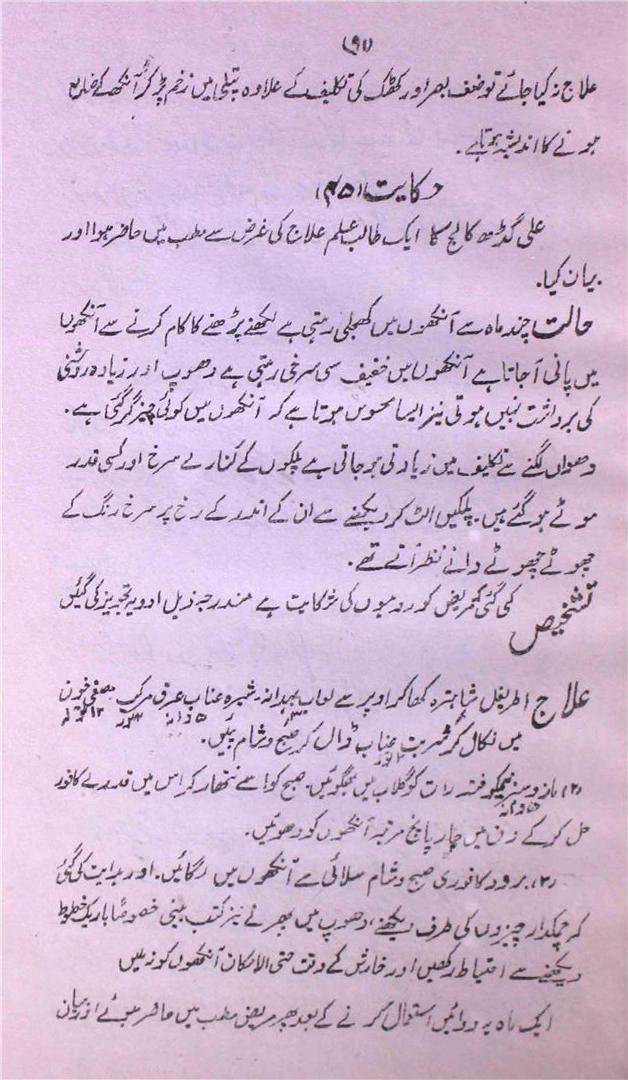 علاج نہ کیا جائے تو ضعف بصر اور کھٹک کی تکلیف کے علاوہ پتلی میں زخم پڑ کر آنکھ کے ضایع
ہونے کا اندیشہ ہوتا ہے۔
حکایت (۴۵)
علی گڑھ کالج کا ایک طالب علم علاج کی غرض سے مطب میں حاضر ہوا اور
بیان کیا۔
حالت چند ماہ سے آنکھوں میں کھجلی رہتی ہے لکھنے پڑھنے کا کام کرنے سے آنکھوں
میں پانی آ جاتا ہے آنکھوں میں خفیف سی سرخی رہتی ہے دھوپ اور زیادہ روشنی
کی برداشت نہیں ہوتی نیز ایسا محسوس ہوتا ہے کہ آنکھوں میں کوئی چیز گر گئی ہے۔
دھواں لگنے سے تکلیف میں زیادتی ہو جاتی ہے پلکوں کے کنارے سرخ اور کسی قدر
موٹے ہو گئے ہیں۔ پلکیں الٹ کر دیکھنے سے ان کے اندر کے رخ پر سرخ رنگ کے
چھوٹے چھوٹے دانے نظر آتے تھے۔
تشخیص کی گئی کہ مریض کو روہوں کی شکایت ہے مندرجہ ذیل ادویہ تجویز کی گئیں
علاج اطریفل شاہترہ کھا کر اوپر سے لعاب بہدانہ شیرہ عناب عرق مرکب مصفی خون
میں نکال کر شربت عناب ڈال کر صبح و شام پئیں۔
(۲) مازو سبز نیمکوفتہ رات کو گلاب میں بھگوئیں۔ صبح کو اسے نتھار کر اس میں قدرے کافور
حل کر کے دن میں چار پانچ مرتبہ آنکھوں کو دھوئیں۔
(۳) برود کافوری صبح و شام سلائی سے آنکھوں میں لگائیں۔ اور ہدایت کی گئی
کہ چمکدار چیزوں کی طرف دیکھنے، دھوپ میں پھرنے نیز کتب بینی خصوصاً باریک خطوط
دیکھنے سے احتیاط رکھیں اور خارش کے وقت حتی الامکان آنکھوں کو نہ ملیں
ایک ماہ یہ دوائیں استعمال کرنے کے بعد پھر مریض مطب میں حاضر ہوئے اور بیان